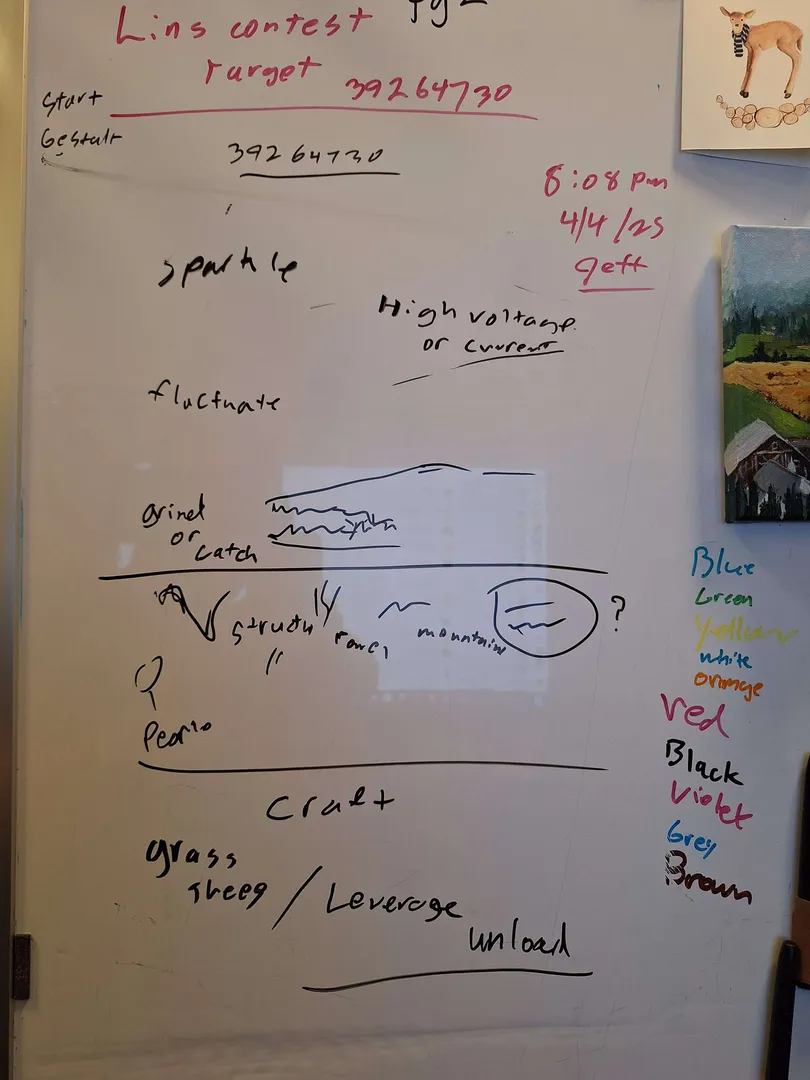 Pg 2
Lins contest
Target 39264730
Start
Gestalt
39264730
8:08 pm
4/4/25
Jeff
sparkle
High voltage
or current
fluctuate
Grind
or
catch
?
mountains
People
Craft
grass
/ Leverage
unload
Blue
Green
Yellow
white
orange
red
Black
Violet
Grey
Brown